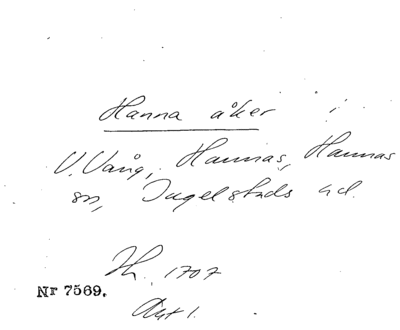 Hanna åker i
V. Vång, Hannas, Hannas
sn, Ingelstads hd.
Jb. 1707
Nr 7569.
Akt 1.